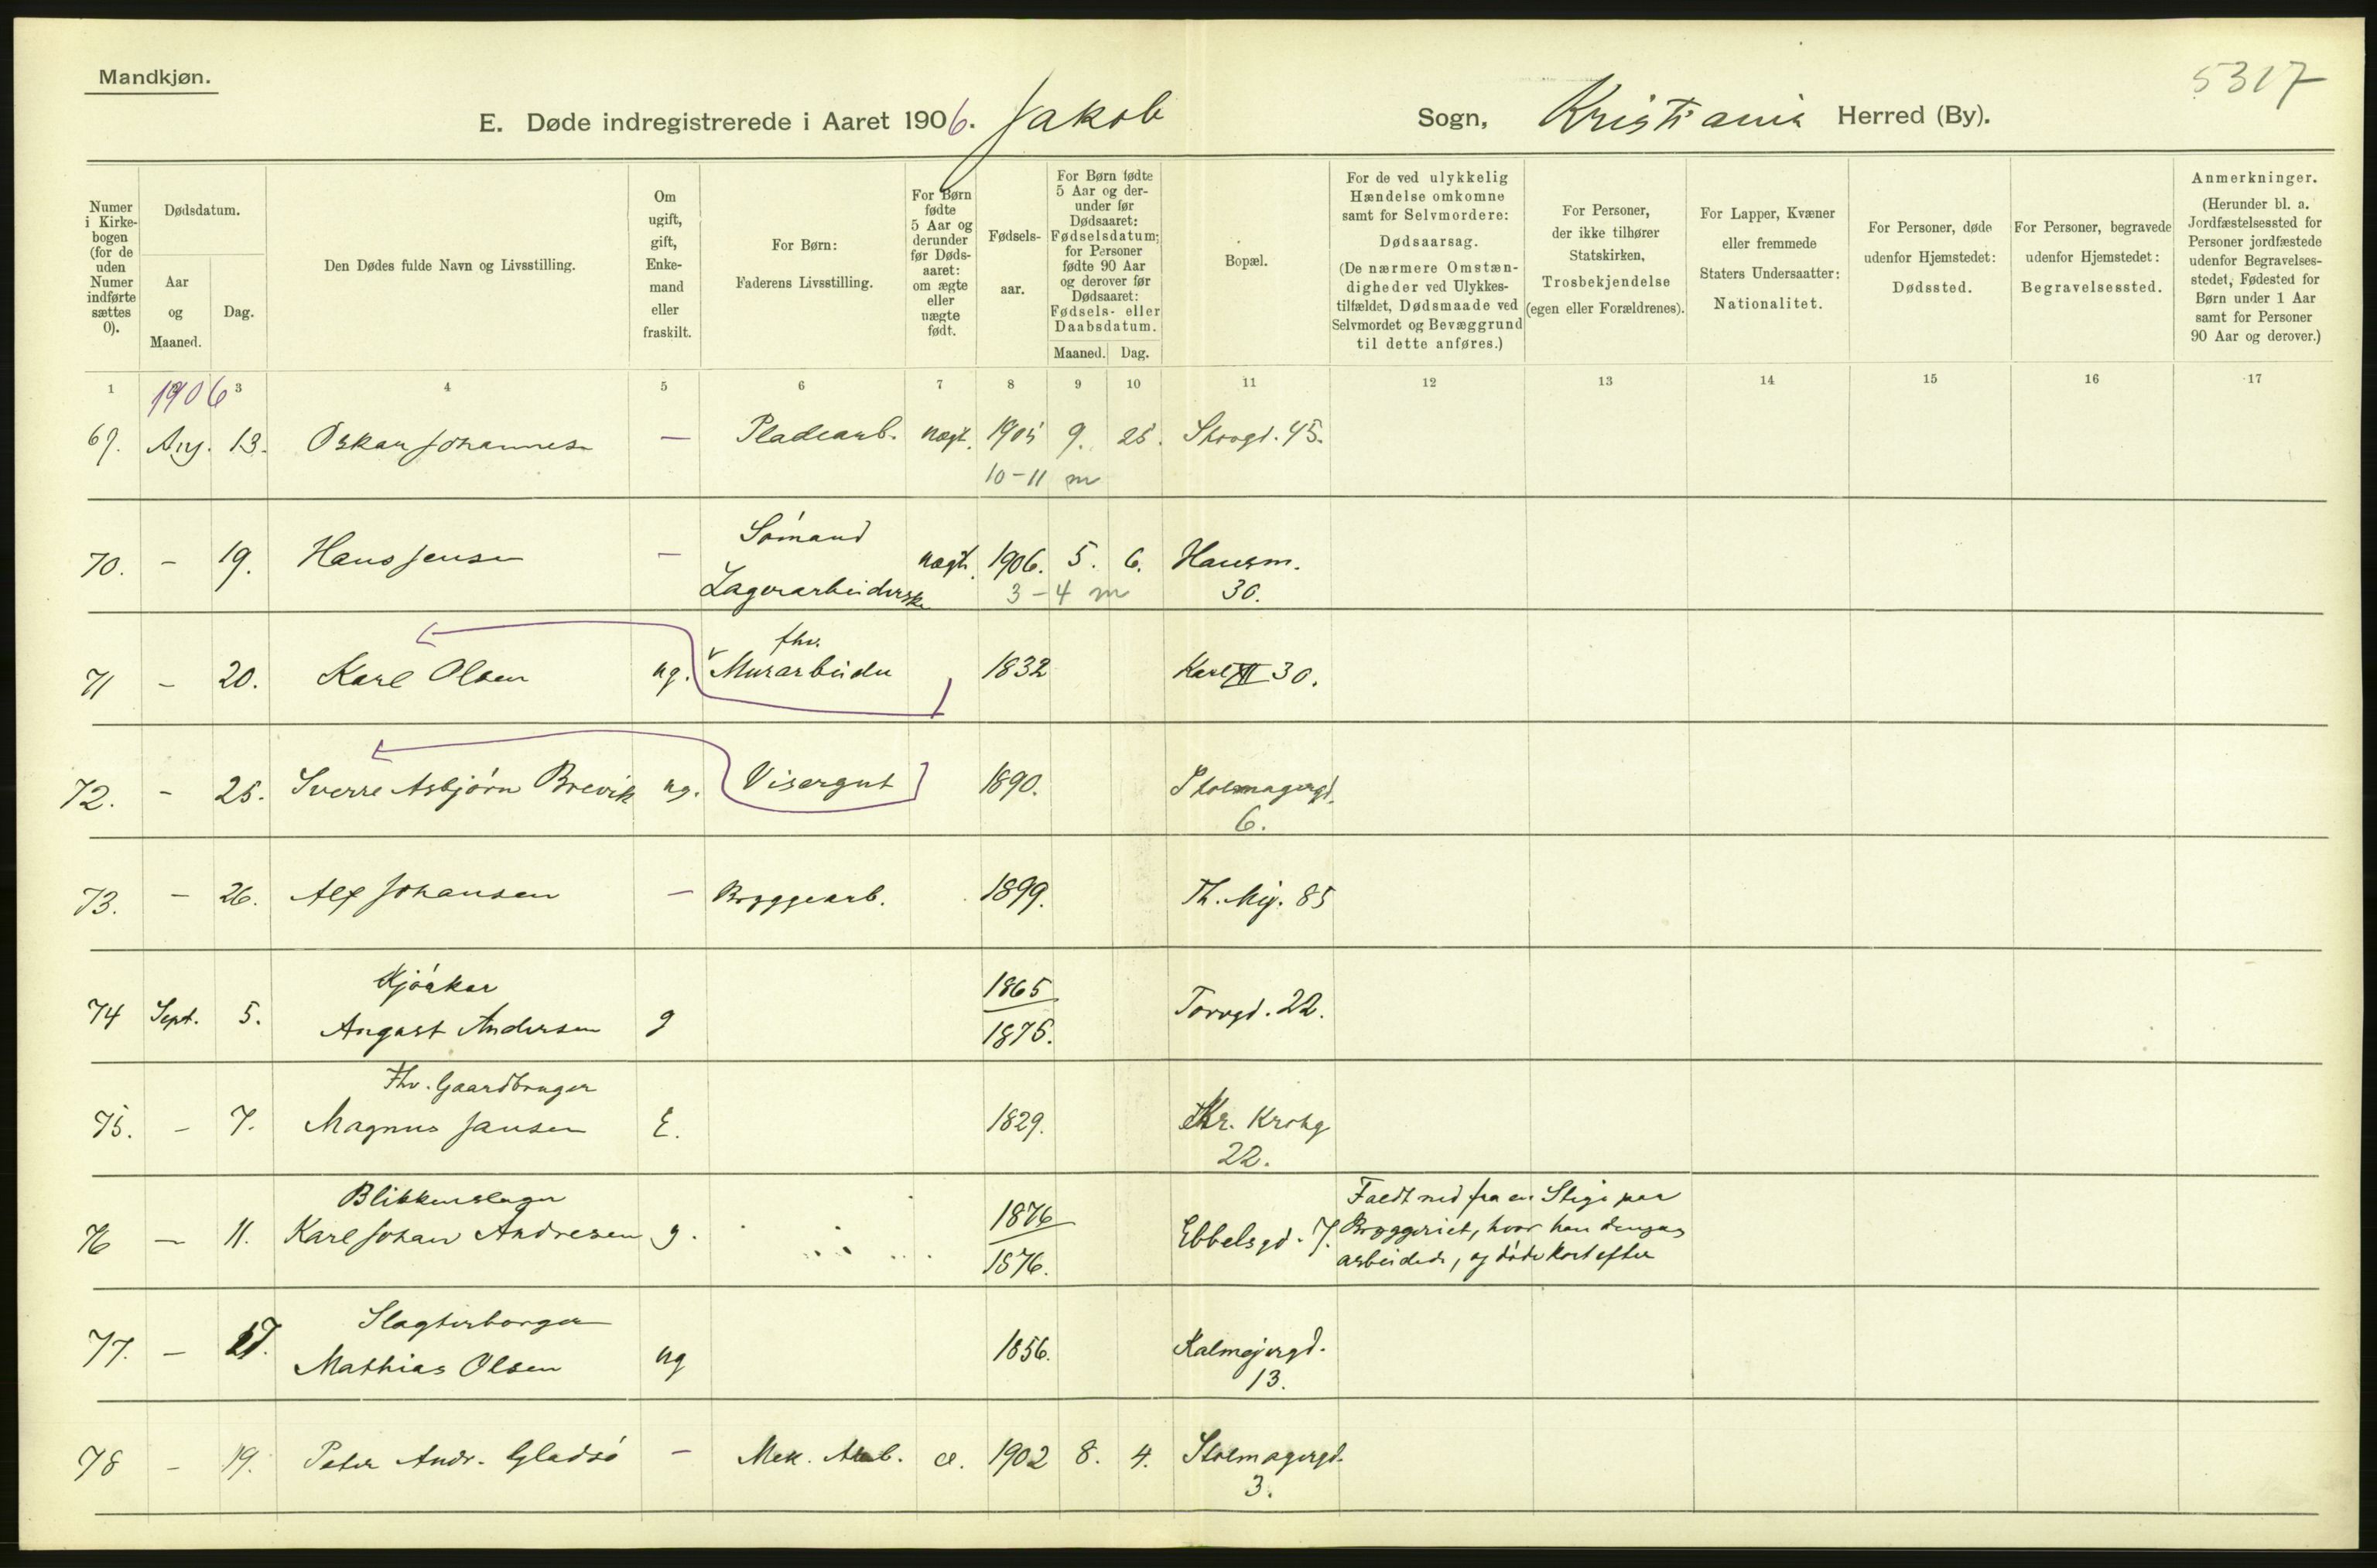 Mandkjøn.
5317
E. Døde indregistrerede i Aaret 1906. Jakob Sogn, Kristiania Herred (By).
Numer i Kirkebogen (for de uden Numer indførte sættes 0).
Dødsdatum.
Aar og Maaned.
Dag.
Den Dødes fulde Navn og Livsstilling.
Om ugift, gift, Enkemand eller fraskilt.
For Børn: Faderens Livsstilling.
For Børn fødte 5 Aar og derunder før Dødsaaret: om ægte eller uægte født.
Fødselsaar.
For Børn fødte 5 Aar og derunder før Dødsaaret: Fødselsdatum; for Personer fødte 90 Aar og derover før Dødsaaret: Fødsels- eller Daabsdatum.
Maaned. Dag.
Bopæl.
For de ved ulykkelig Hændelse omkomne samt for Selvmordere: Dødsaarsag. (De nærmere Omstændigheder ved Ulykkestilfældet, Dødsmaade ved Selvmordet og Bevæggrund til dette anføres.)
For Personer, der ikke tilhører Statskirken, Trosbekjendelse (egen eller Forældrenes).
For Lapper, Kvæner eller fremmede Staters Undersaatter: Nationalitet.
For Personer, døde udenfor Hjemstedet: Dødssted.
For Personer, begravede udenfor Hjemstedet: Begravelsessted.
Anmerkninger. (Herunder bl. a. Jordfæstelsessted for Personer jordfæstede udenfor Begravelsesstedet, Fødested for Børn under 1 Aar samt for Personer 90 Aar og derover.)
1 3 4 5 6 7 8 9 10 11 12 13 14 15 16 17
1906
69. Aug. 13. Oskar Johannes — Pladearb. uægt. 1905 9. 25. Skovgd. 45.
10-11 m
Sømand
70. - 19. Hans Jensen — uægt. 1906. 5. 6. Hausm.
Lagerarbeiderske 3-4 m 30.
fhv.
71 - 20. Karl Olsen ug. Murarbeider 1832 Karl XII 30.
72. - 25. Sverre Asbjørn Brevik ug. Visergut 1890. Stolmagergd.
6.
73. - 26. Alf Johansen — Bryggearb. 1899. Th. Mey. 85
Kjørkar 1865
74 Sept. 5. August Andersen g 1875. Torvgd. 22.
Fhv. Gaardbruger
75. - 7. Magnus Jansen E. 1829. Kr. Krohg
22.
Blikkenslager 1876 Faldt ned fra en Stige paa
76 - 11. Karl Johan Andresen g. 1876. Ebbelsgd. 7. Bryggeriet, hvor han
arbeidede, og døde kort efter
Slagterborger
77. - 17. Mathias Olsen ug 1856. Kalmejergd.
13.
78 - 19. Peter Andr. Gladsø — Mek. Arb. æ. 1902 8. 4. Stolmagergd.
3.